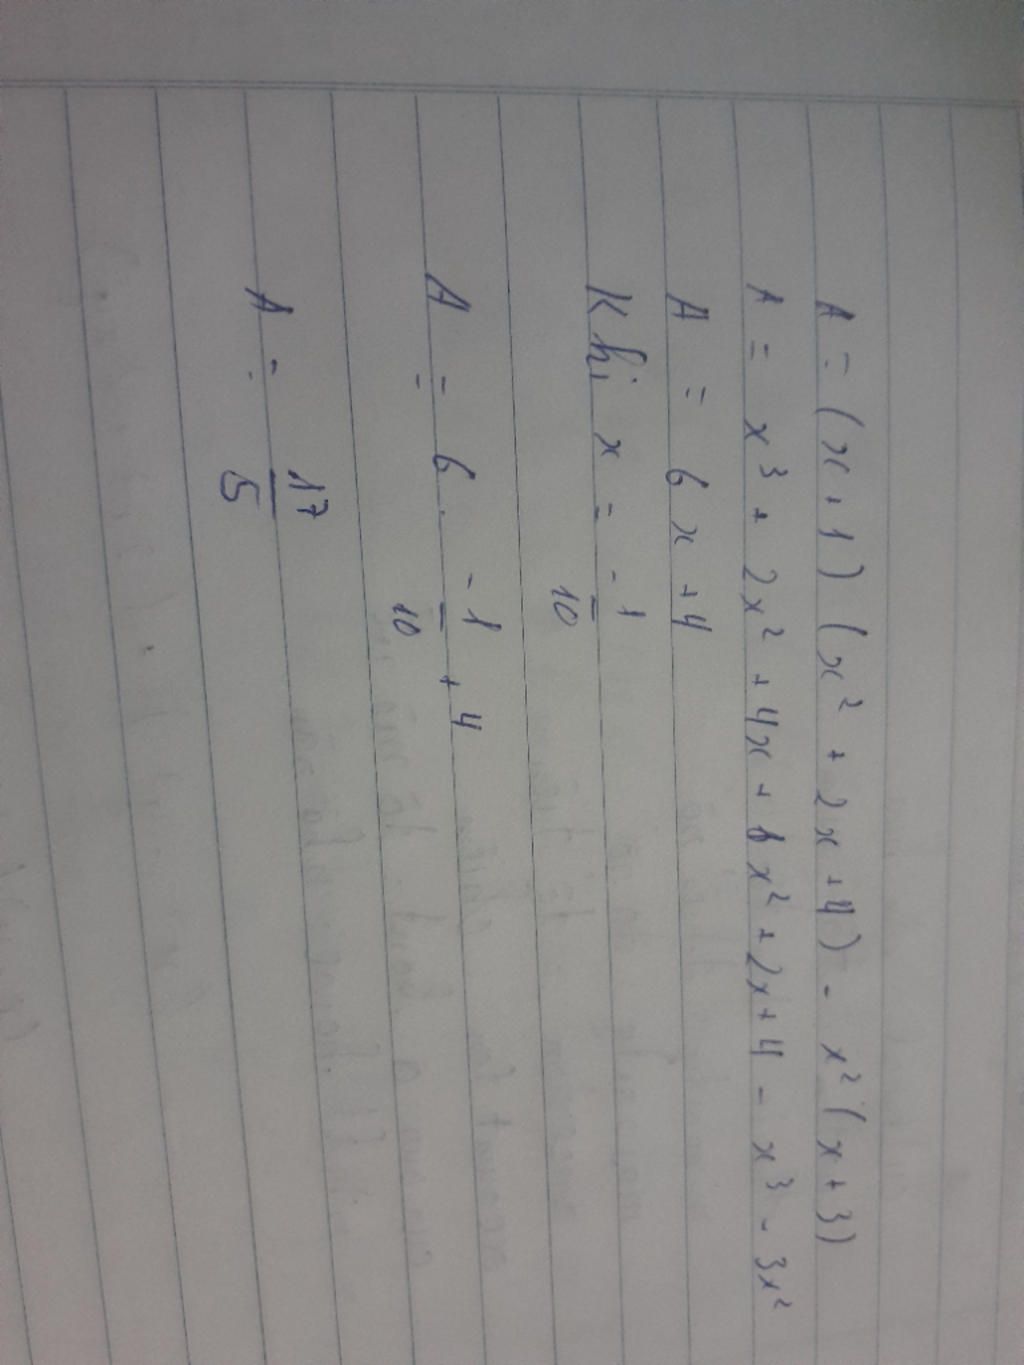 A = (x + 1) (x² + 2x + 4) - x² (x + 3)
A = x³ + 2x² + 4x + 1x² + 2x + 4 - x³ - 3x²
A = 6x + 4
Khi x = -1/10
A = 6 . -1/10 + 4
A = 17/5